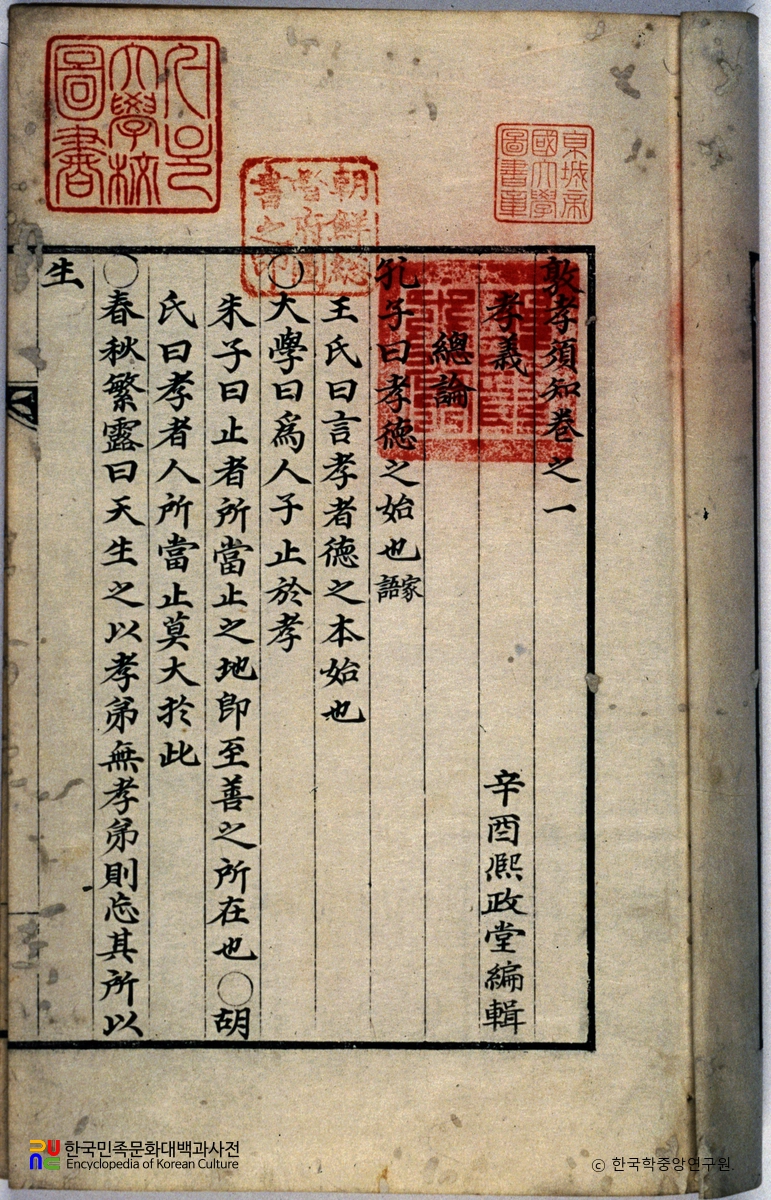 敦孝須知卷之一
孝義 辛酉熙政堂編輯
總論
孔子曰孝德之始也家語
王氏曰言孝者德之本始也
○大學曰爲人子止於孝
朱子曰止者所當止之地即至善之所在也○胡
氏曰孝者人所當止莫大於此
○春秋繁露曰天生之以孝弟無孝弟則忘其所以
生
서울大學校圖書
朝鮮總督府圖書之印
京城帝國大學圖書章
한국민족문화대백과사전
Encyclopedia of Korean Culture
© 한국학중앙연구원